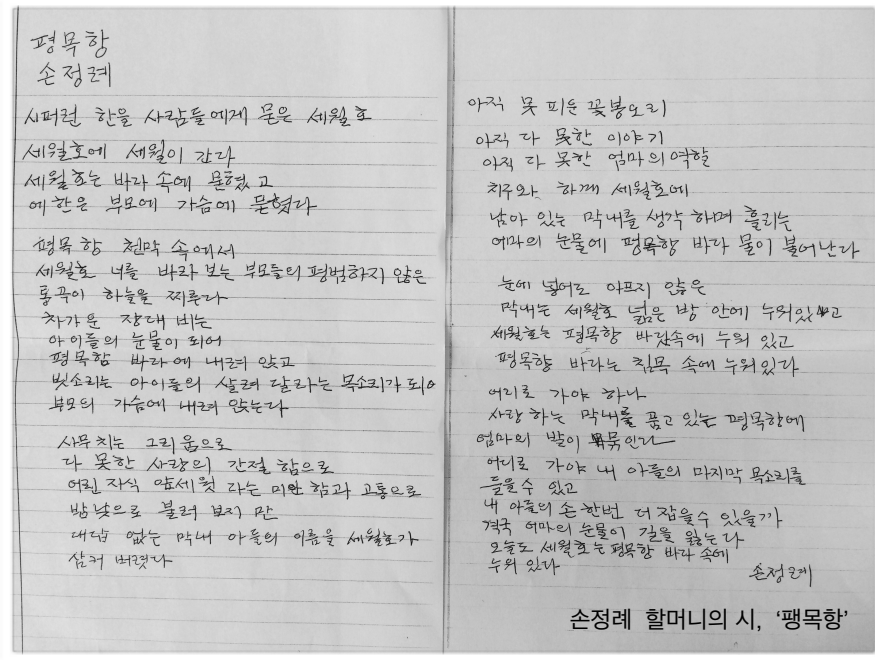 평목항
손정례
시퍼런 한을 사람들에게 묻은 세월호
세월호에 세월이 간다
세월호는 바라 속에 묻혔고
에 한은 부모에 가슴에 묻혔다
평목항 천막 속에서
세월호 너를 바라 보는 부모들의 평범하지 않은
통곡이 하늘을 찌른다
차가운 장대 비는
아이들의 눈물이 되어
평목함 바라에 내려 앉고
빗소리는 아이들의 살려 달라는 목소리가 되어
부모의 가슴에 내려 앉는다
사무치는 그리움으로
다 못한 사랑의 간절함으로
어린 자식 앞세웟 라는 미안함과 고통으로
밤낮으로 불러 보지만
대답 없는 막내 아들의 이름을 세월호가
삼켜 버렸다
아직 못 피운 꽃봉오리
아직 다 못한 이야기
아직 다 못한 엄마의 역할
친구와 함께 세월호에
남아 있는 막내를 생각 하며 흘리는
에마의 눈물에 평목항 바라 물이 불어난다
눈에 넣어도 아프지 않은
막내는 세월호 넓은 방 안에 누워있고
세월호는 평목항 바닷속에 누워 있고
평목항 바라는 침묵 속에 누워있다
어리로 가야 하나
사랑 하는 막내를 품고 있는 평목항에
엄마의 발이 묶인다
어디로 가야 내 아들의 마지막 목소리를
들을수 있고
내 아들의 손 한번 더 잡을수 있을까
결국 어마의 눈물이 길을 잃는다
오늘도 세월호는 평목항 바라 속에
누워 있다
손정례
손정례 할머니의 시, ‘팽목항’